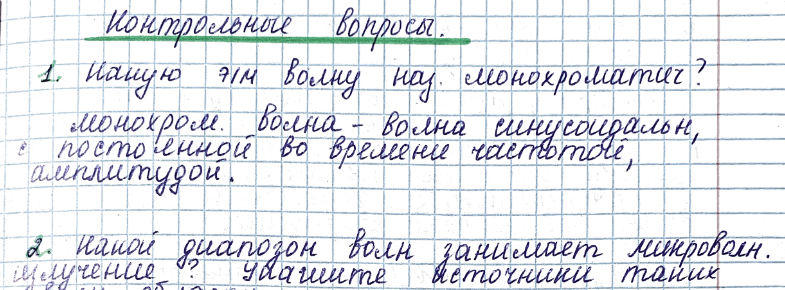 Контрольные вопросы.
1. Какую э/м волну наз. монохроматич?
монохром. волна – волна синусоидальн,
с постоянной во времени частотой,
амплитудой.
2. Какой диапозон волн занимает микроволн.
излучение? Укажите источники таких